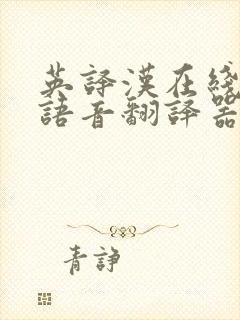 英譯漢在綫
語音翻譯器
青諍